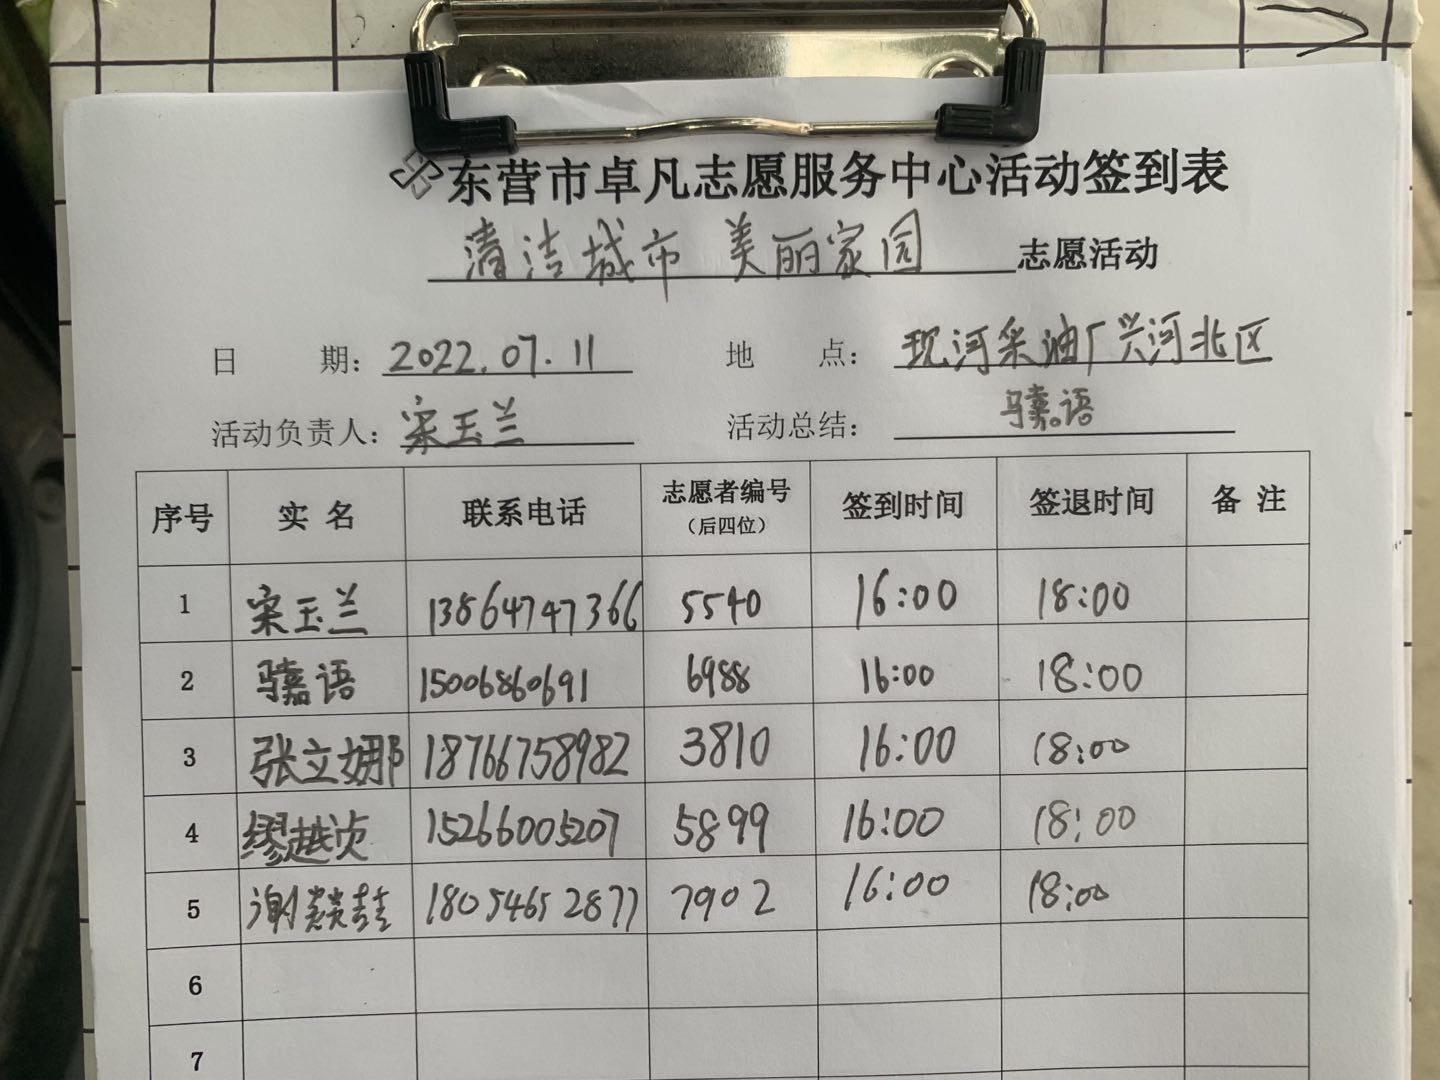 东营市卓凡志愿服务中心活动签到表
清洁城市 美丽家园 志愿活动
日 期： 2022.07.11 地 点： 现河采油厂兴河北区
活动负责人： 宋玉兰 活动总结： 骑嘉语
序号 实 名 联系电话 志愿者编号（后四位） 签到时间 签退时间 备 注
1 宋玉兰 13864747366 5540 16:00 18:00
2 嘉语 15006860691 6988 16:00 18:00
3 张立娜 18766758982 3810 16:00 18:00
4 缪越贞 15266005207 5899 16:00 18:00
5 谢 18054652877 7902 16:00 18:00
6
7